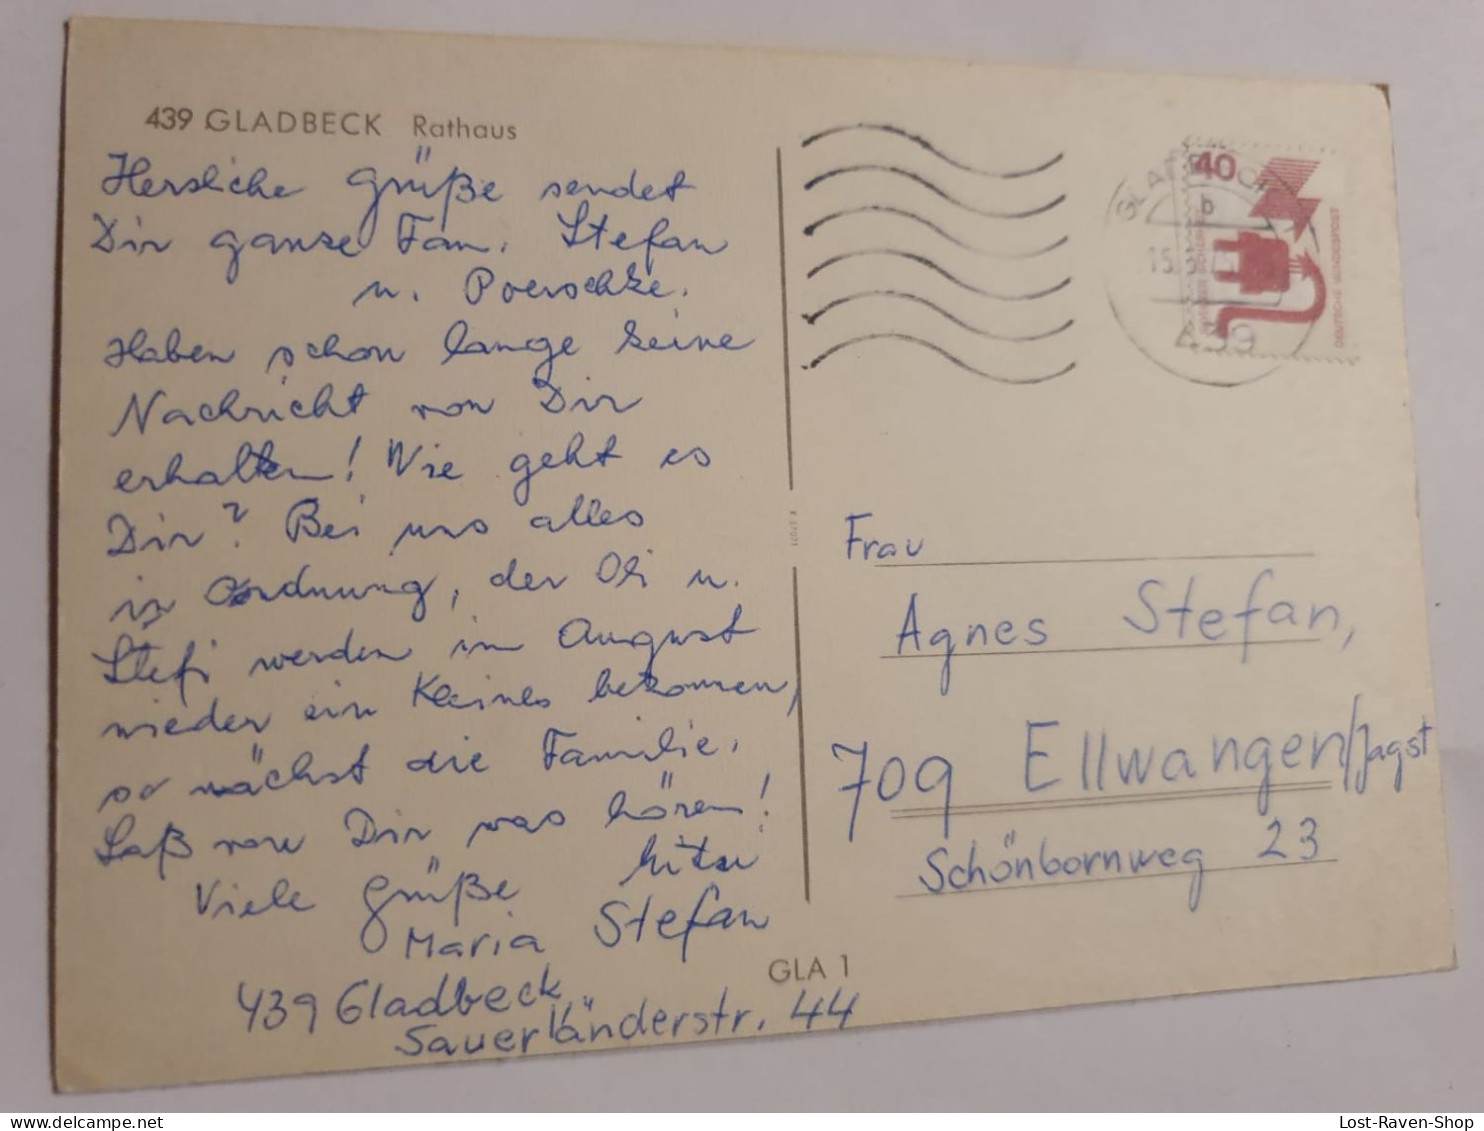 439 GLADBECK Rathaus
Hersliche Grüße sendet
Dir ganze Fam. Stefan
u. Poerschke.
Haben schon lange keine
Nachricht von Dir
erhalten! Wie geht es
Dir? Bei uns alles
in Ordnung, der Oli u.
Stefi werden im August
wieder ein Kleines bekomen,
so wächst die Familie.
Laß von Dir was hören!
Viele Grüße
Maria Stefan
439 Gladbeck
Sauerländerstr. 44
GLA 1
40
DEUTSCHE BUNDESPOST
b
439
Frau
Agnes Stefan,
709 Ellwangen/Jagst
Schönbornweg 23
Lost-Raven-Shop